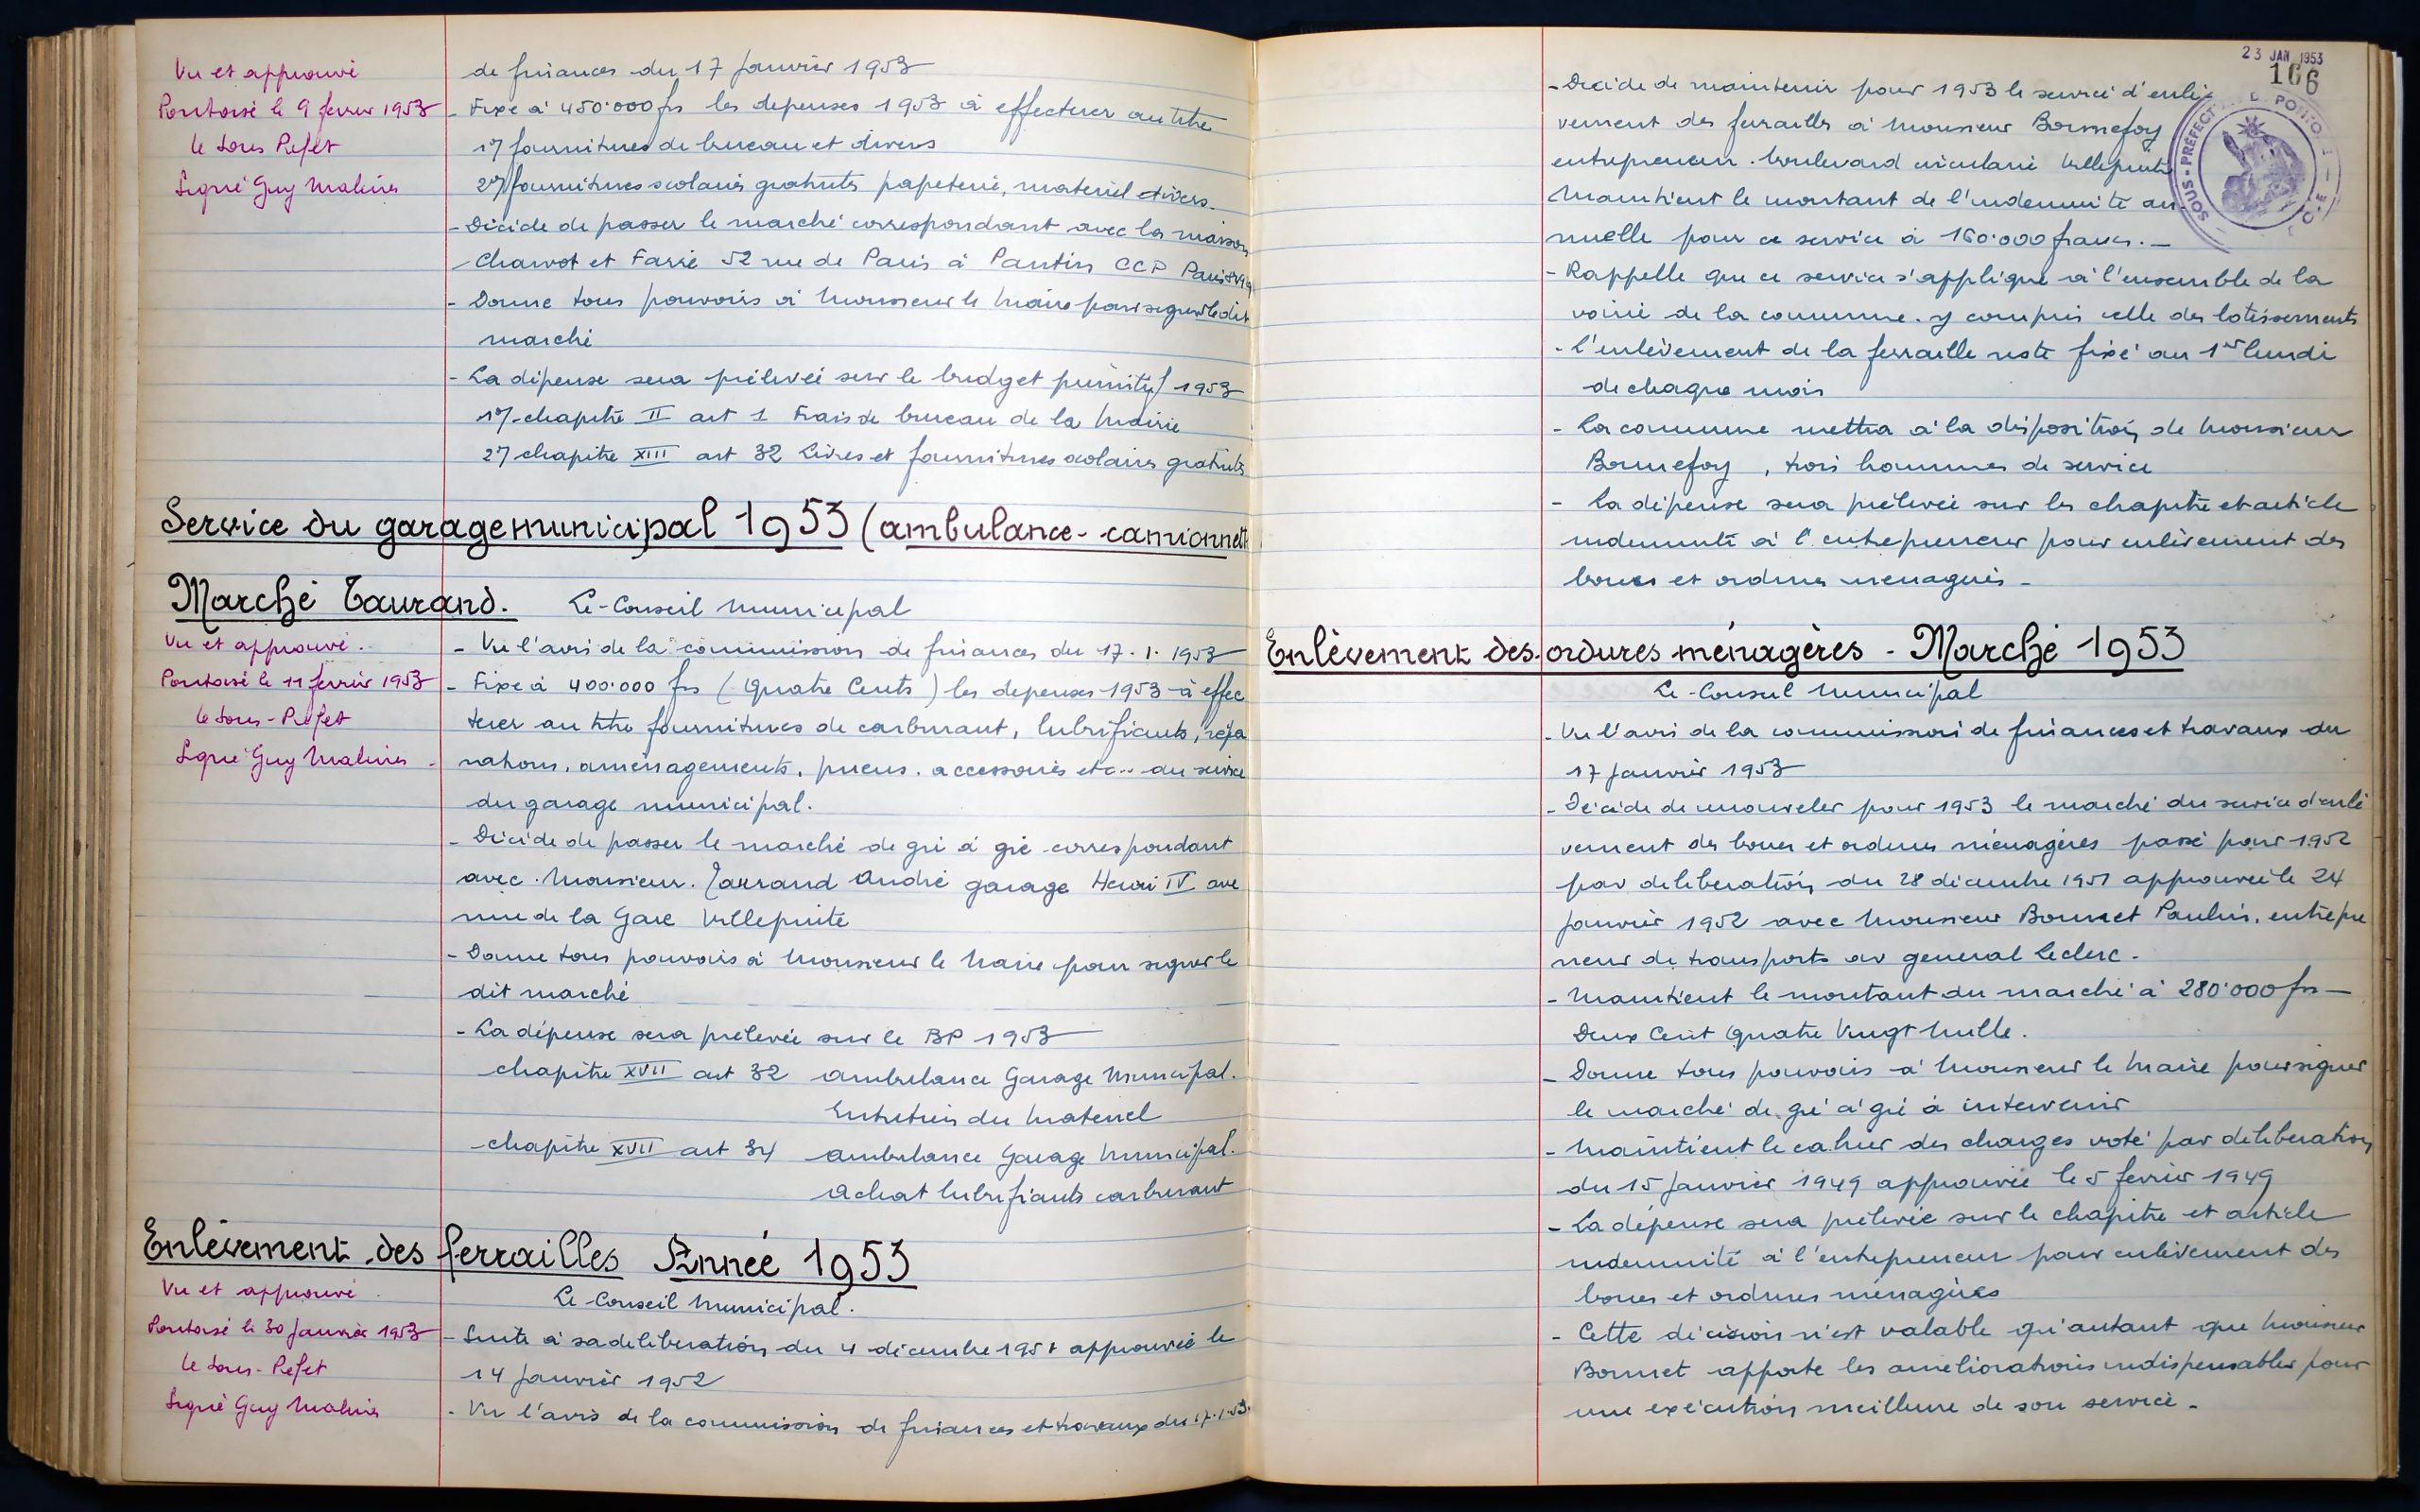 Vu et approuvé
Pontoise le 9 fevrier 1953
le Sous Prefet
Signé Guy Malines
de finances du 17 Janvier 1953
- Fixe à 450.000 frs les depenses 1953 à effectuer au titre
1°/ fournitures de bureau et divers
2°/ fournitures scolaires gratuites papeterie, materiel divers.
- Décide de passer le marché correspondant avec la maison
- Charvot et Farié 52 rue de Paris à Pantin CCP Paris
- Donne tous pouvoirs à Monsieur le Maire pour signer le dit
marché
- La dépense sera prélevée sur le budget primitif 1953
1°/ chapitre II art 1 Frais de bureau de la Mairie
2°/ chapitre XIII art 32 Livres et fournitures scolaires gratuits
Service du garage municipal 1953 (ambulance - camionnett
Marché Taurand. Le Conseil Municipal
Vu et approuvé.
Pontoise le 11 fevrier 1953
le Sous-Prefet
Signé Guy Malines
- Vu l'avis de la commission de finances du 17.1.1953
- Fixe à 400.000 frs (Quatre Cents) les depenses 1953 à effec
tuer au titre fournitures de carburant, lubrifiants, répa
rations, aménagements, pneus, accessoires etc... du service
du garage municipal.
- Décide de passer le marché de gré à gré correspondant
avec Monsieur Taurand André garage Henri IV ave
nue de la Gare Villepinte
- Donne tous pouvoirs à Monsieur le Maire pour signer le
dit marché
- La dépense sera prélevée sur le BP 1953
chapitre XVII art 32 ambulance Garage Municipal.
Entretien du Materiel
chapitre XVII art 34 ambulance Garage Municipal.
Achat lubrifiants carburant
Enlèvement des ferrailles Année 1953
Vu et approuvé
Pontoise le 30 Janvier 1953
le Sous-Prefet
Signé Guy Malines
Le Conseil Municipal.
- Suite à sa deliberation du 4 décembre 1951 approuvée le
14 Janvier 1952
- Vu l'avis de la commission de finances et travaux du 17.1.53.
23 JAN 1953
166
SOUS-PRÉFECTURE DE PONTOISE
- Décide de maintenir pour 1953 le service d'enlè
vement des ferrailles à Monsieur Bonnefoy
entrepreneur boulevard circulaire Villepinte
Maintient le montant de l'indemnité an
nuelle pour ce service à 160.000 francs. -
- Rappelle que ce service s'applique à l'ensemble de la
voirie de la commune. y compris celle des lotissements
- l'enlèvement de la ferraille reste fixé au 1er lundi
de chaque mois
- La commune mettra à la disposition de Monsieur
Bonnefoy, trois hommes de service
- la dépense sera prélevée sur les chapitre et article
indemnité à l'entrepreneur pour enlèvement des
boues et ordures menagères -
Enlèvement des ordures ménagères - Marché 1953
Le Conseil Municipal
- Vu l'avis de la commission de finances et travaux du
17 Janvier 1953
- Décide de renouveler pour 1953 le marché du service d'enlè
vement des boues et ordures ménagères passé pour 1952
par deliberation du 28 décembre 1951 approuvée le 24
Janvier 1952 avec Monsieur Bonnet Paulin, entrepre
neur de transports av general Leclerc.
- Maintient le montant du marché à 280.000 frs
Deux Cent Quatre Vingt Mille.
- Donne tous pouvoirs à Monsieur le Maire pour signer
le marché de gré à gré à intervenir
- Maintient le cahier des charges voté par deliberation
du 15 Janvier 1949 approuvée le 5 fevrier 1949
- La dépense sera prélevée sur le chapitre et article
indemnité à l'entrepreneur pour enlèvement des
boues et ordures ménagères
- Cette décision n'est valable qu'autant que Monsieur
Bonnet apporte les améliorations indispensables pour
une exécution meilleure de son service.